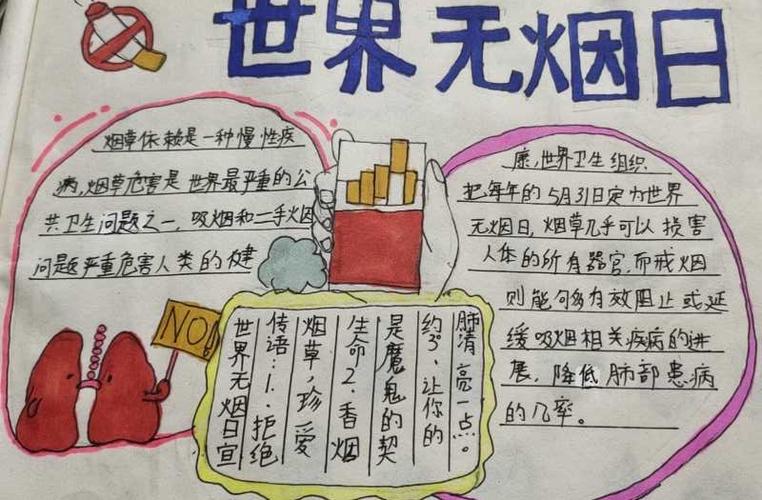 世界无烟日
烟草依赖是一种慢性疾
病,烟草危害是世界最严重的公
共卫生问题之一,吸烟和二手烟
问题严重危害人类的健
康,世界卫生组织
把每年的5月31日定为世界
无烟日,烟草几乎可以损害
人体的所有器官,而戒烟
则能够有效阻止或延
缓吸烟相关疾病的进
展,降低肺部患病
的几率。
NO!
世界无烟日宣
传语:1.拒绝
烟草,珍爱
生命2.香烟
是魔鬼的契
约3、让你的
肺清亮一点。